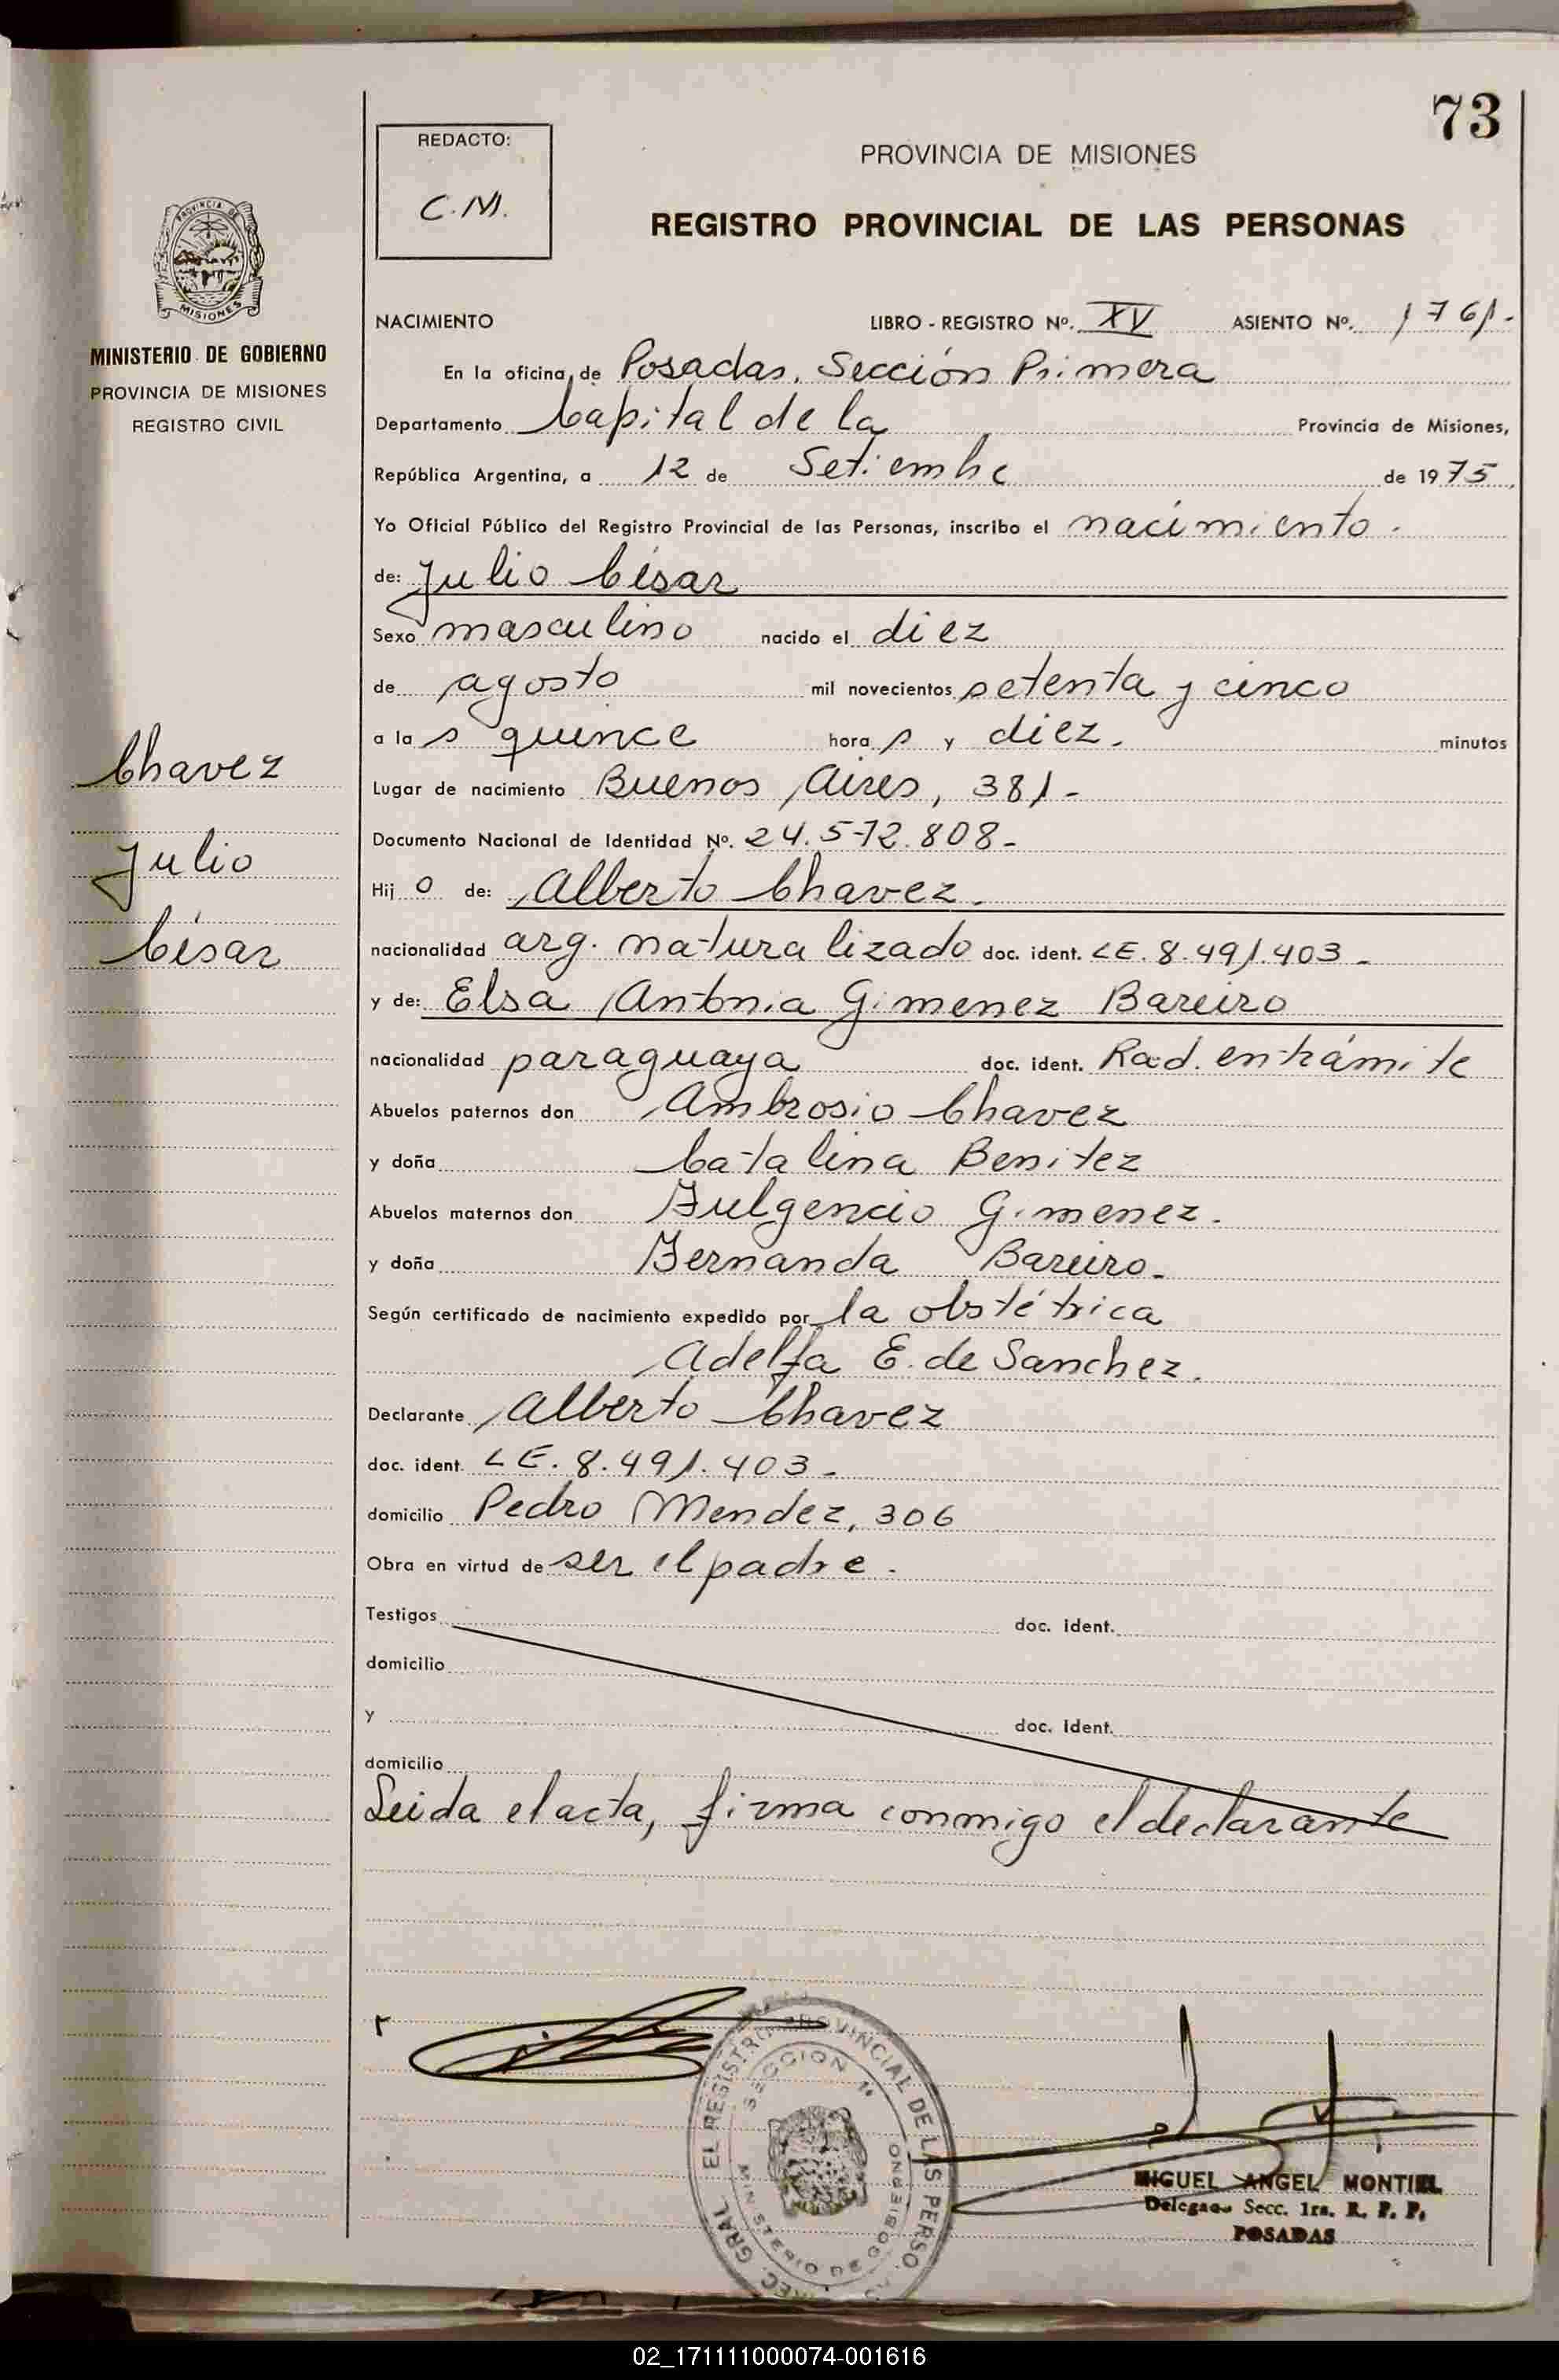 73
REDACTO:
C.M.
PROVINCIA DE MISIONES
REGISTRO PROVINCIAL DE LAS PERSONAS
PROVINCIA DE
MISIONES
MINISTERIO DE GOBIERNO
PROVINCIA DE MISIONES
REGISTRO CIVIL
NACIMIENTO LIBRO - REGISTRO Nº. XV ASIENTO Nº. 1761.
En la oficina de Posadas. Sección Primera
Departamento Capital de la Provincia de Misiones,
República Argentina, a 12 de Setiembre de 1975
Yo Oficial Público del Registro Provincial de las Personas, inscribo el nacimiento.
de: Julio César
Sexo masculino nacido el diez
de agosto mil novecientos setenta y cinco
a la s quince hora s y diez. minutos
Lugar de nacimiento Buenos Aires, 381-
Documento Nacional de Identidad Nº. 24.572.808-
Hij o de: Alberto Chavez.
nacionalidad arg. naturalizado doc. ident. LE. 8.491.403-
y de: Elsa Antonia Gimenez Bareiro
nacionalidad paraguaya doc. ident. Rad. en trámite
Abuelos paternos don Ambrosio Chavez
y doña Catalina Benitez
Abuelos maternos don Fulgencio Gimenez.
y doña Fernanda Bareiro.
Según certificado de nacimiento expedido por la obstétrica
Adelfa E. de Sanchez.
Declarante Alberto Chavez
doc. ident. LE. 8.491.403-
domicilio Pedro Mendez, 306
Obra en virtud de ser el padre.
Testigos doc. ident.
domicilio
y doc. ident.
domicilio
Leida el acta, firma conmigo el declarante
Chavez
Julio
César
GRAL. EL REGISTRO PROVINCIAL DE LAS PERSO
SECCION 1ª
MINISTERIO DE GOBIERNO
MIGUEL ANGEL MONTIEL
Delegado Secc. 1ra. R. P. P.
POSADAS
02_171111000074-001616